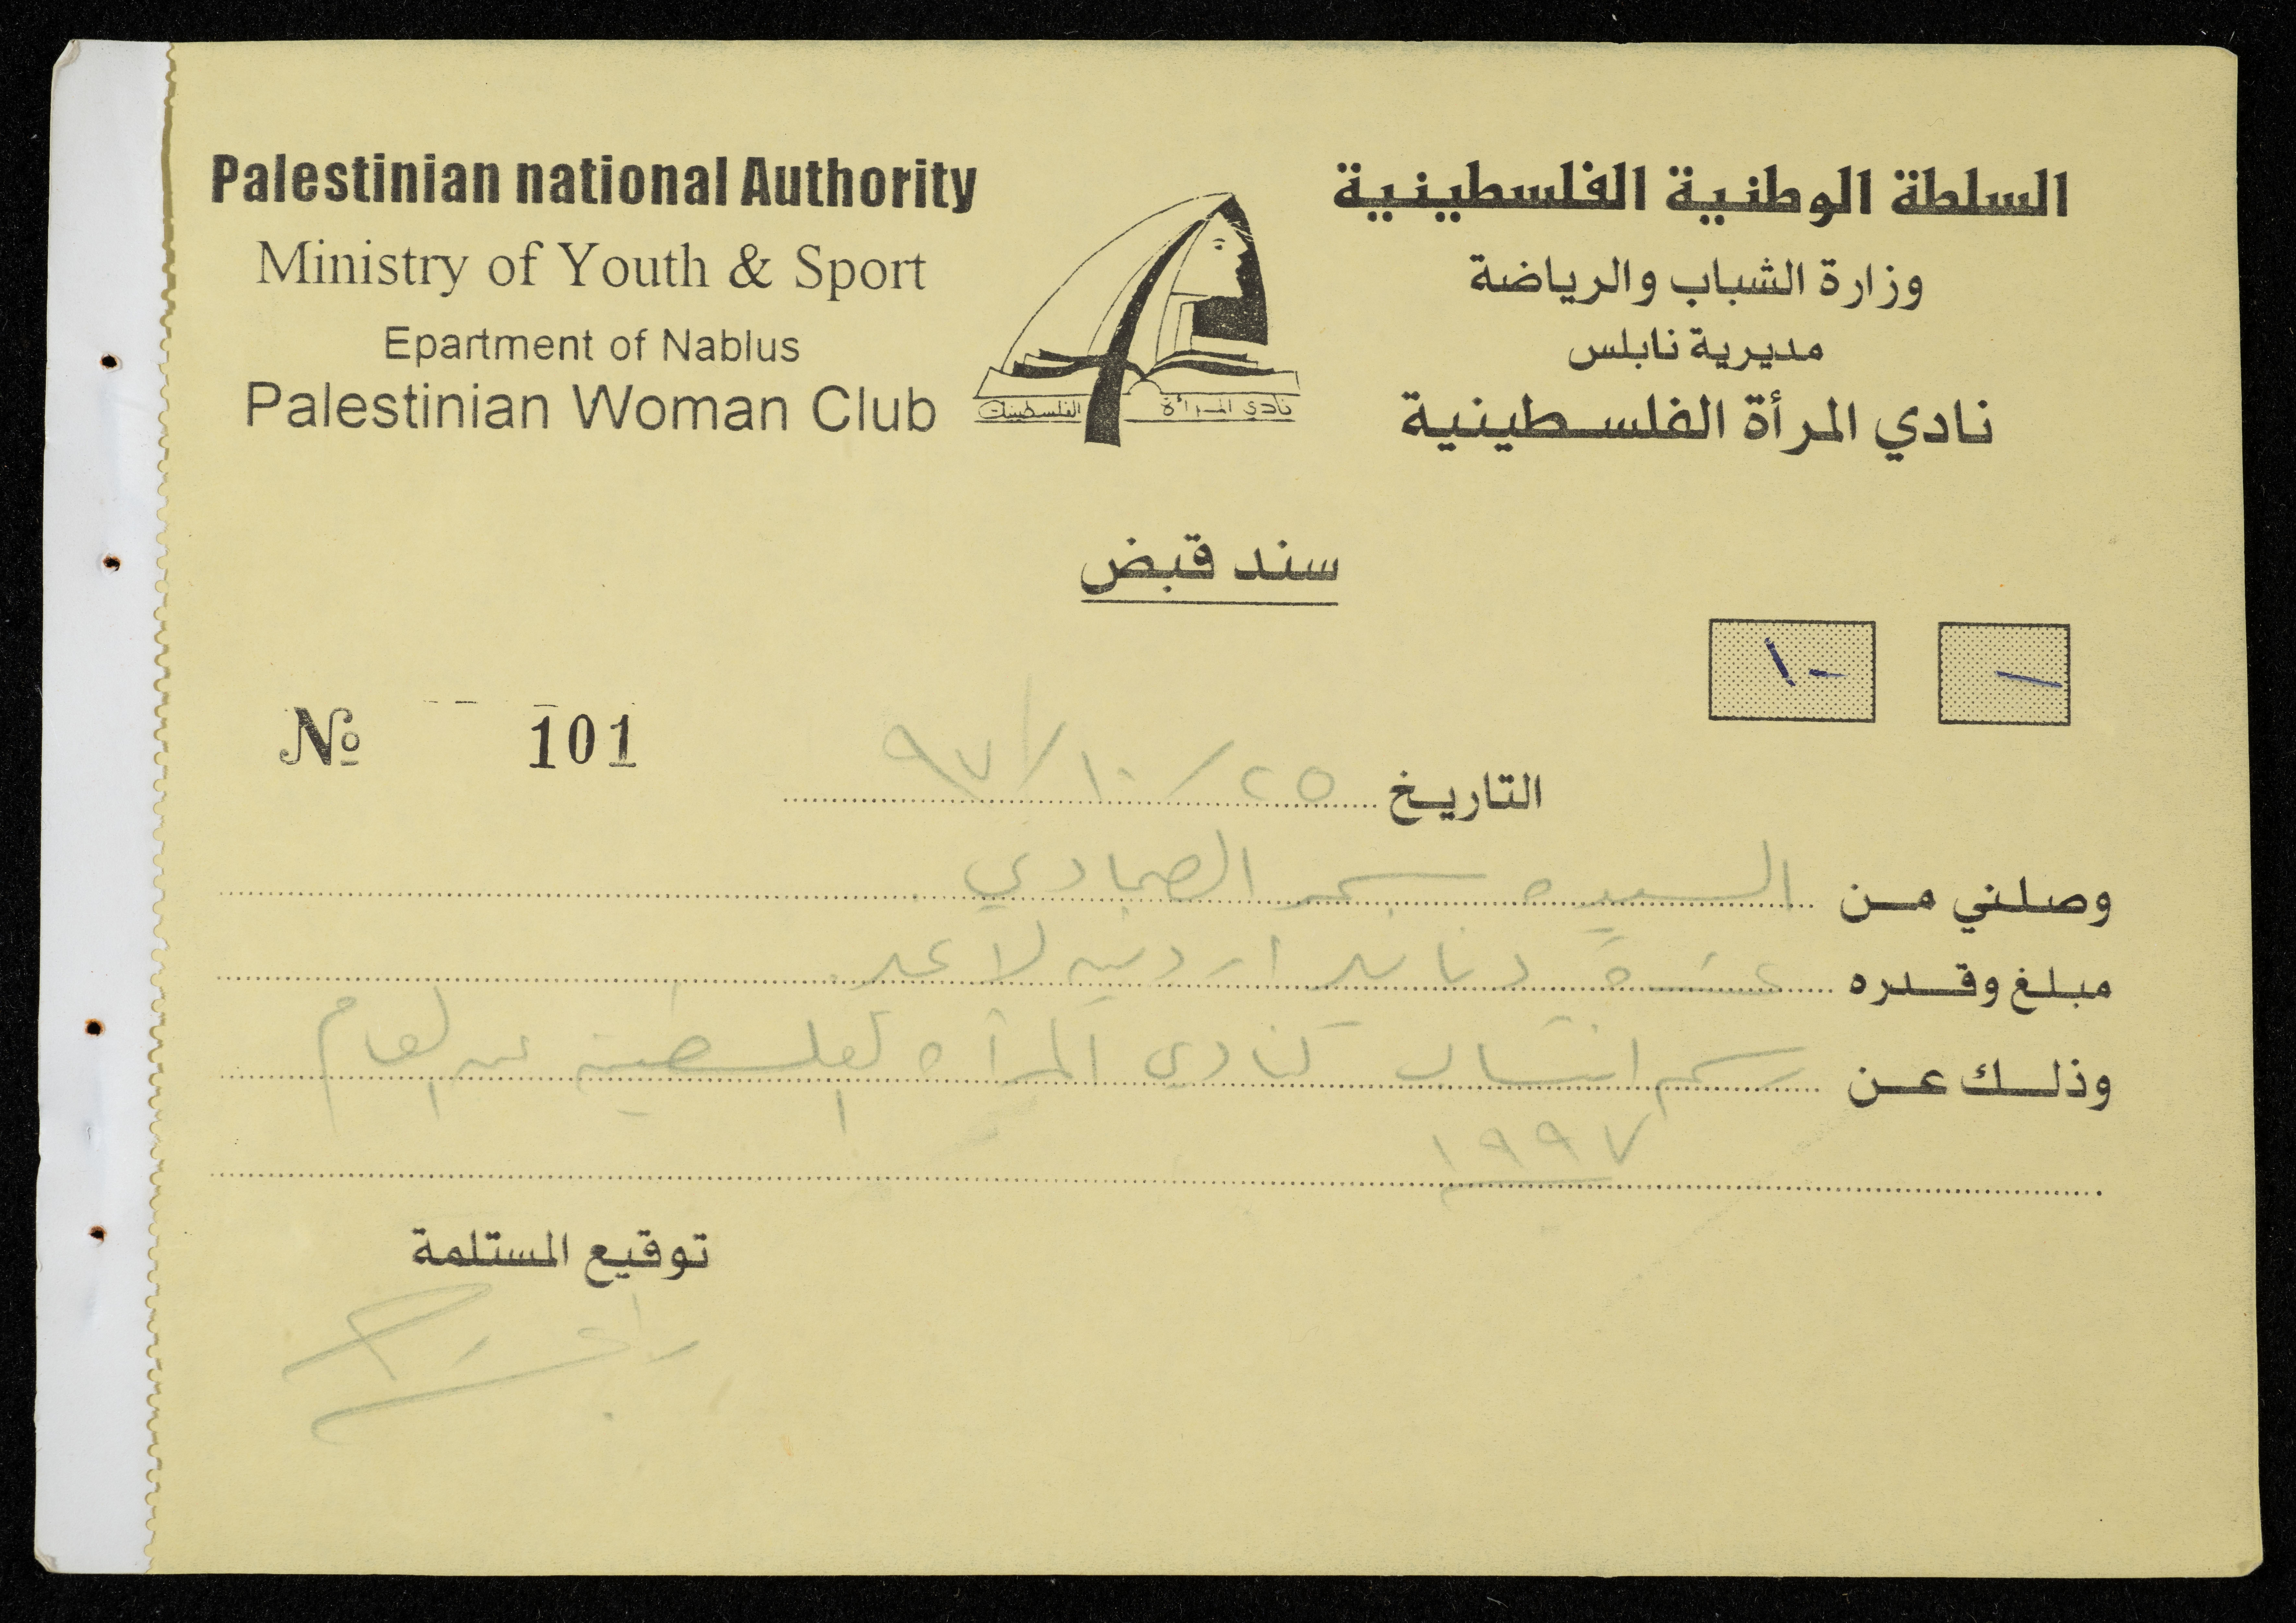 Palestinian national Authority
Ministry of Youth & Sport
Epartment of Nablus
Palestinian Woman Club
السلطة الوطنية الفلسطينية
وزارة الشباب والرياضة
مديرية نابلس
نادي المرأة الفلسطينية
نادي المرأة الفلسطينية
سند قبض
١٠ -
№ 101
التاريخ ٢٥/١٠/٩٧
وصلني من السيدة سحر الصمادي
مبلغ وقدره عشرة دنانير اردنيه لا غير
وذلك عن رسم انتساب لنادي المرأة الفلسطينية عن العام
١٩٩٧
توقيع المستلمة